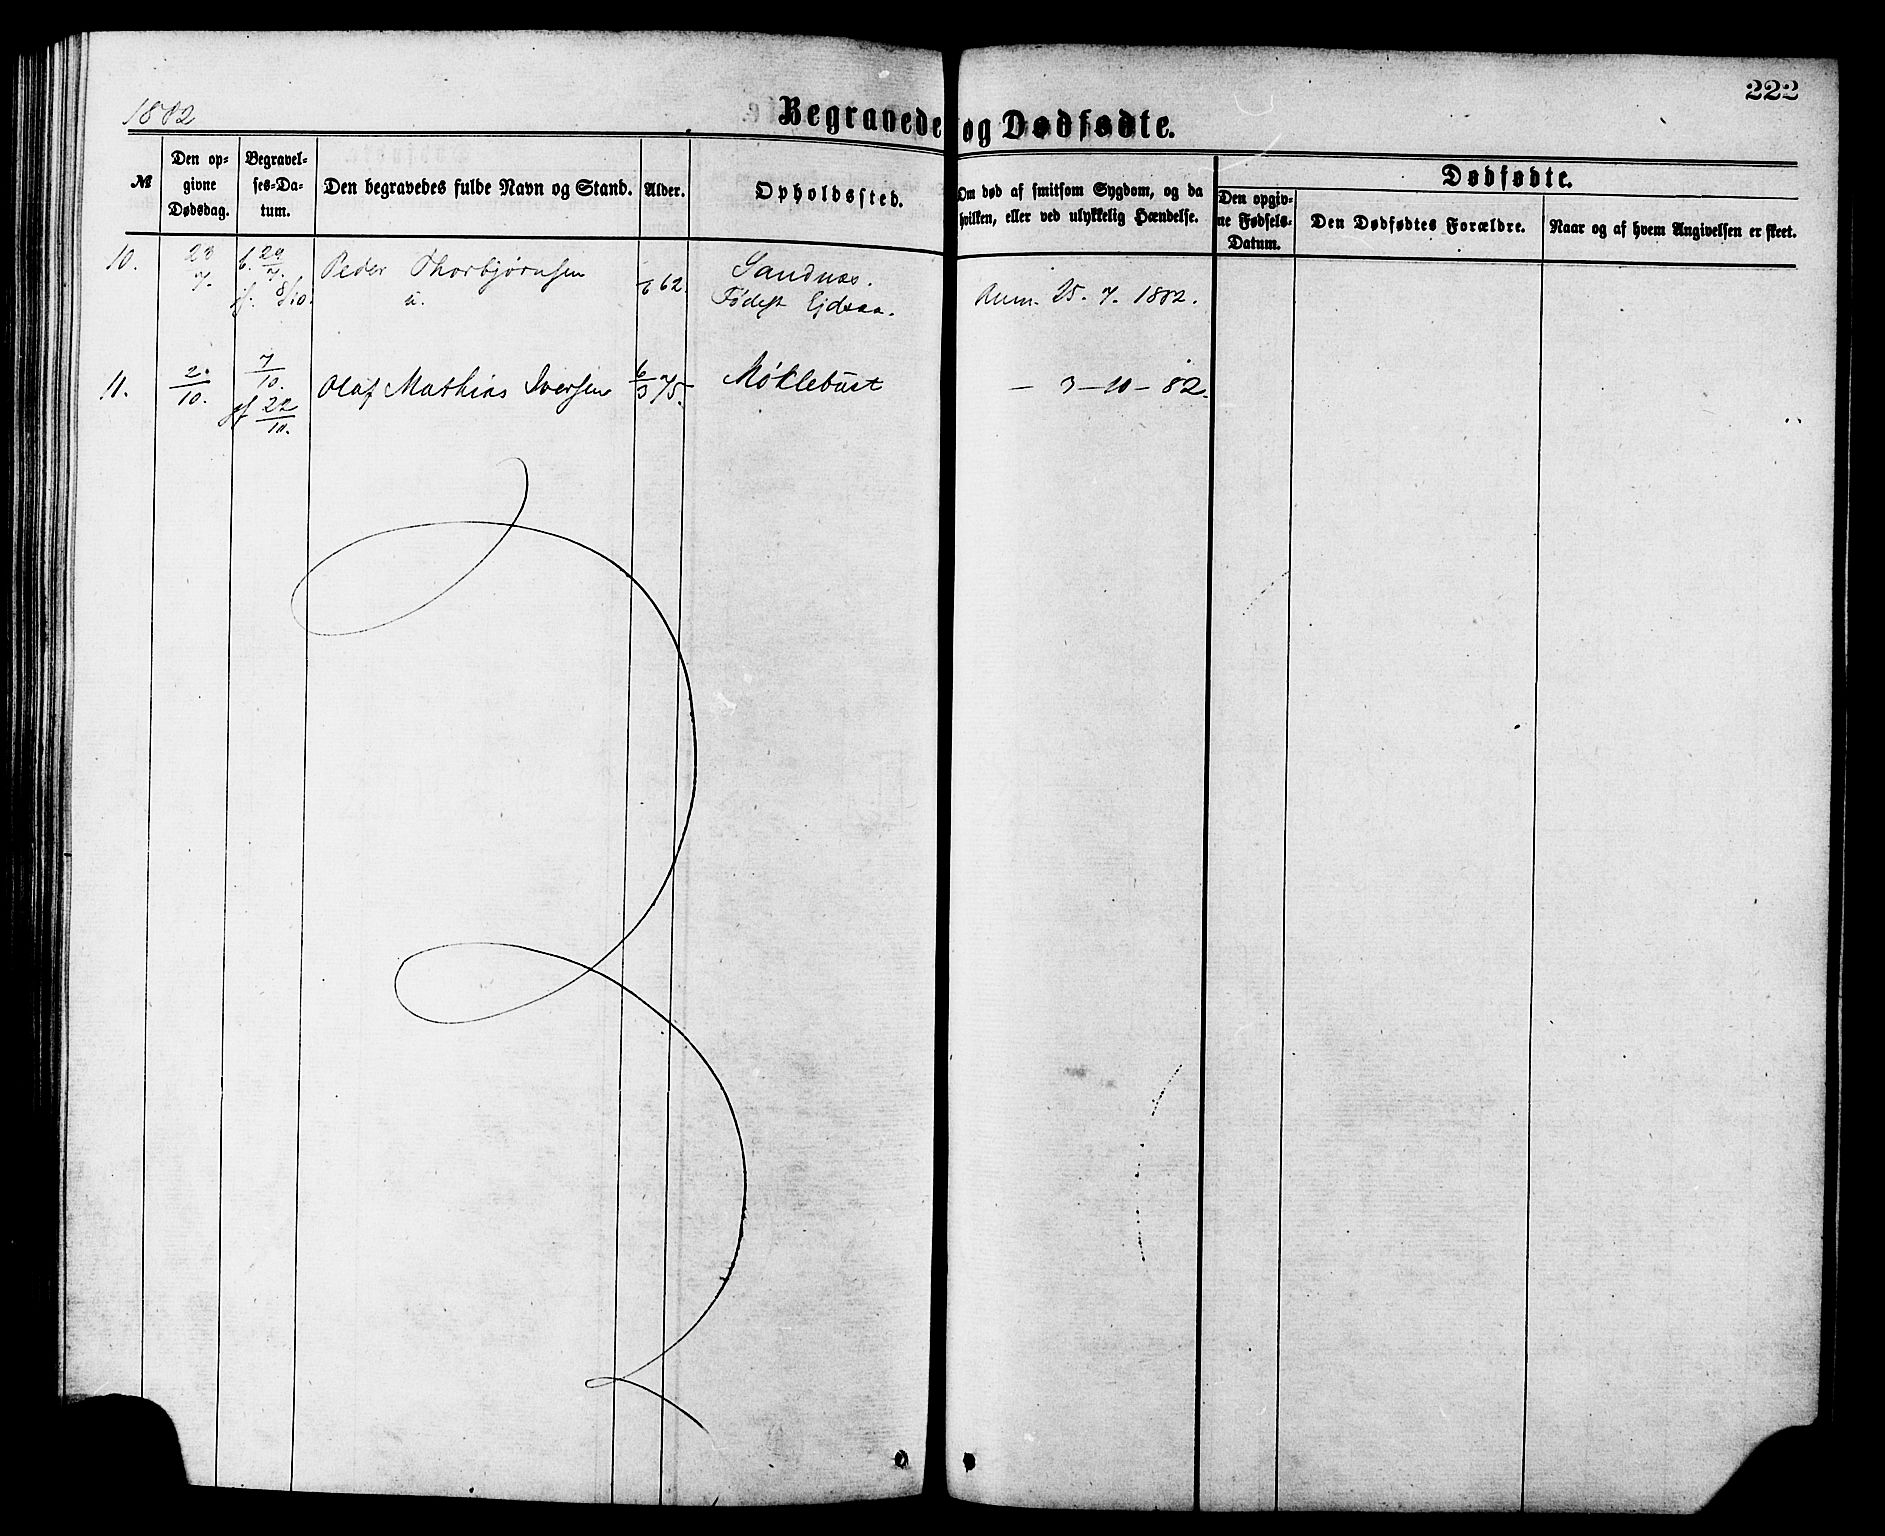 222
1882
Begravede og Dødfødte.
№
Den op-
givne
Dødsdag.
Begravel-
ses-Da-
tum.
Den begravedes fulde Navn og Stand.
Alder.
Opholdssted.
Om død af smitsom Sygdom, og da
hvilken, eller ved ulykkelig Hændelse.
Dødfødte.
Den opgiv-
ne Fødsels-
Datum.
Den Dødfødtes Forældre.
Naar og af hvem Angivelsen er skeet.
10. 23 b. 29 Peder Thorbjørnsen 62. Sandnæs.
7. 7. jf. 8/10. u. Fødest Ejdsaa. Anm. 25. 7. 1882.
11. 2. 10. 7 10. Olaf Mathias Iversen 6 3 75. Møklebust — 3 — 10 — 82.
jf 22 10.